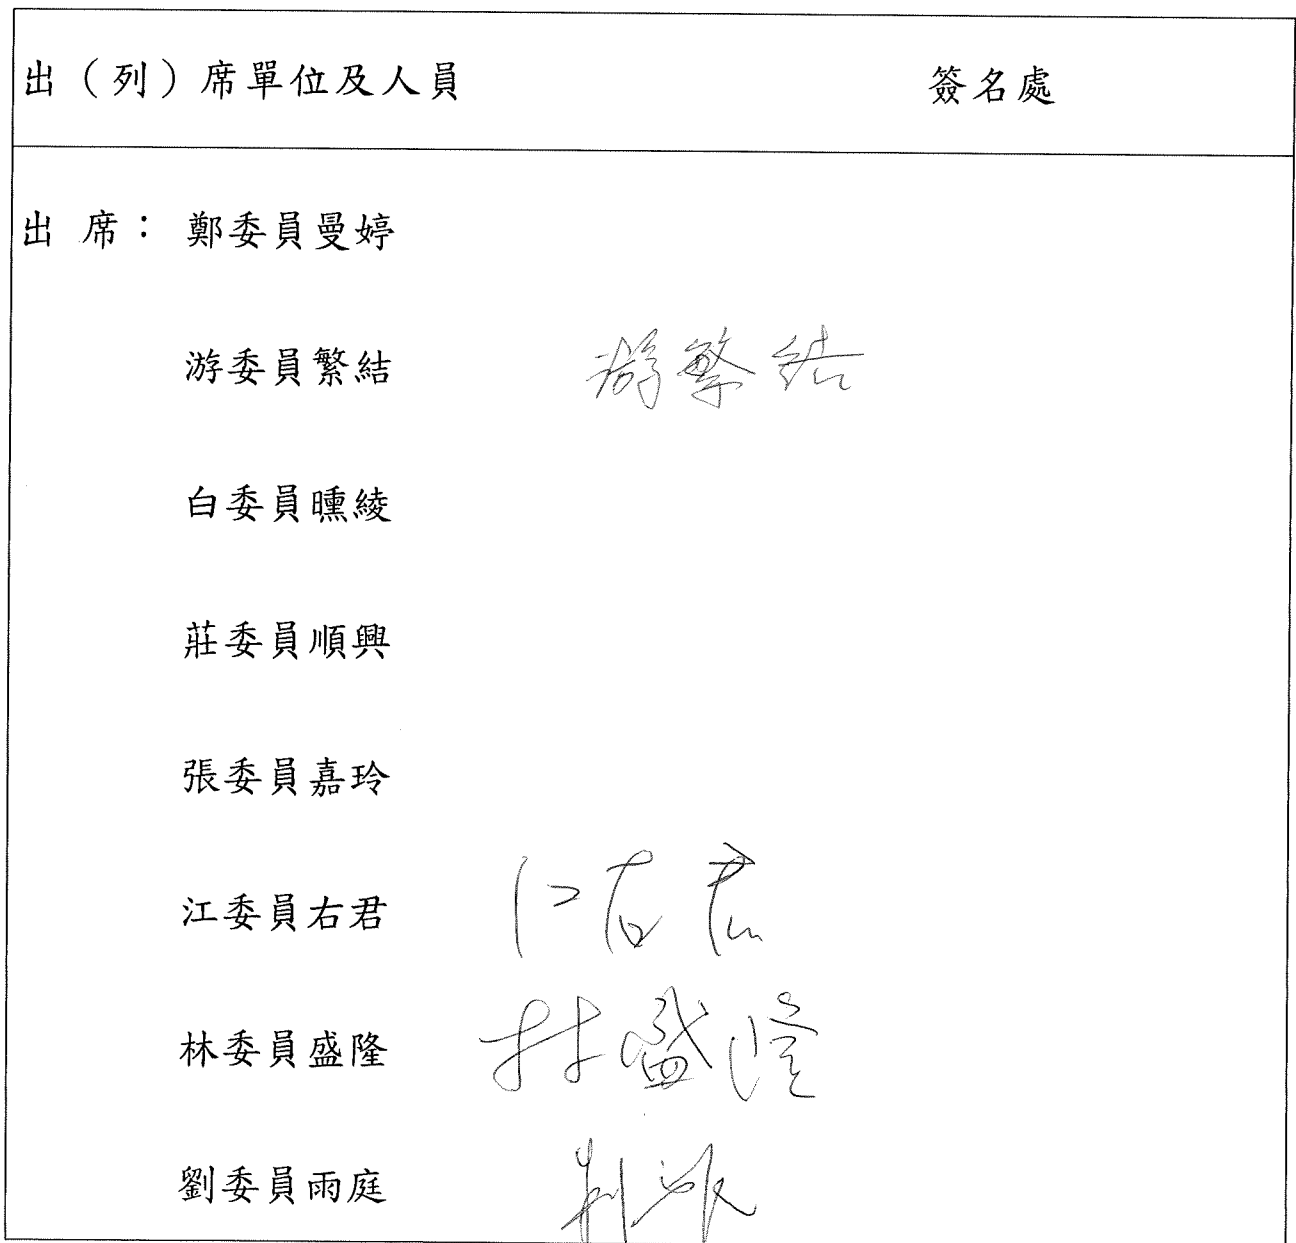 出（列）席單位及人員 簽名處
出 席： 鄭委員曼婷
游委員繁結 游繁結
白委員曛綾
莊委員順興
張委員嘉玲
江委員右君 江右君
林委員盛隆 林盛隆
劉委員雨庭